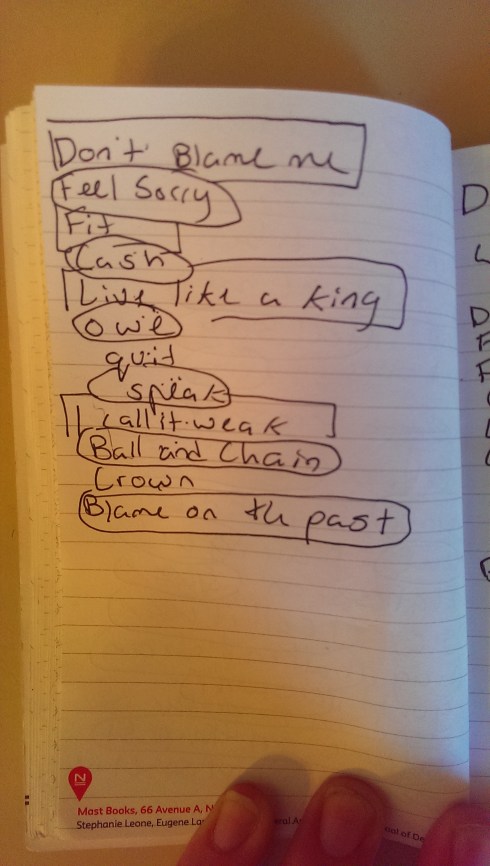 Don't Blame me
Feel Sorry
Fit
Cash
Live like a king
owe
quit
speak
I call it weak
Ball and Chain
Crown
Blame on th past
D
D
F
F
Mast Books, 66 Avenue A, N
Stephanie Leone, Eugene
out of De